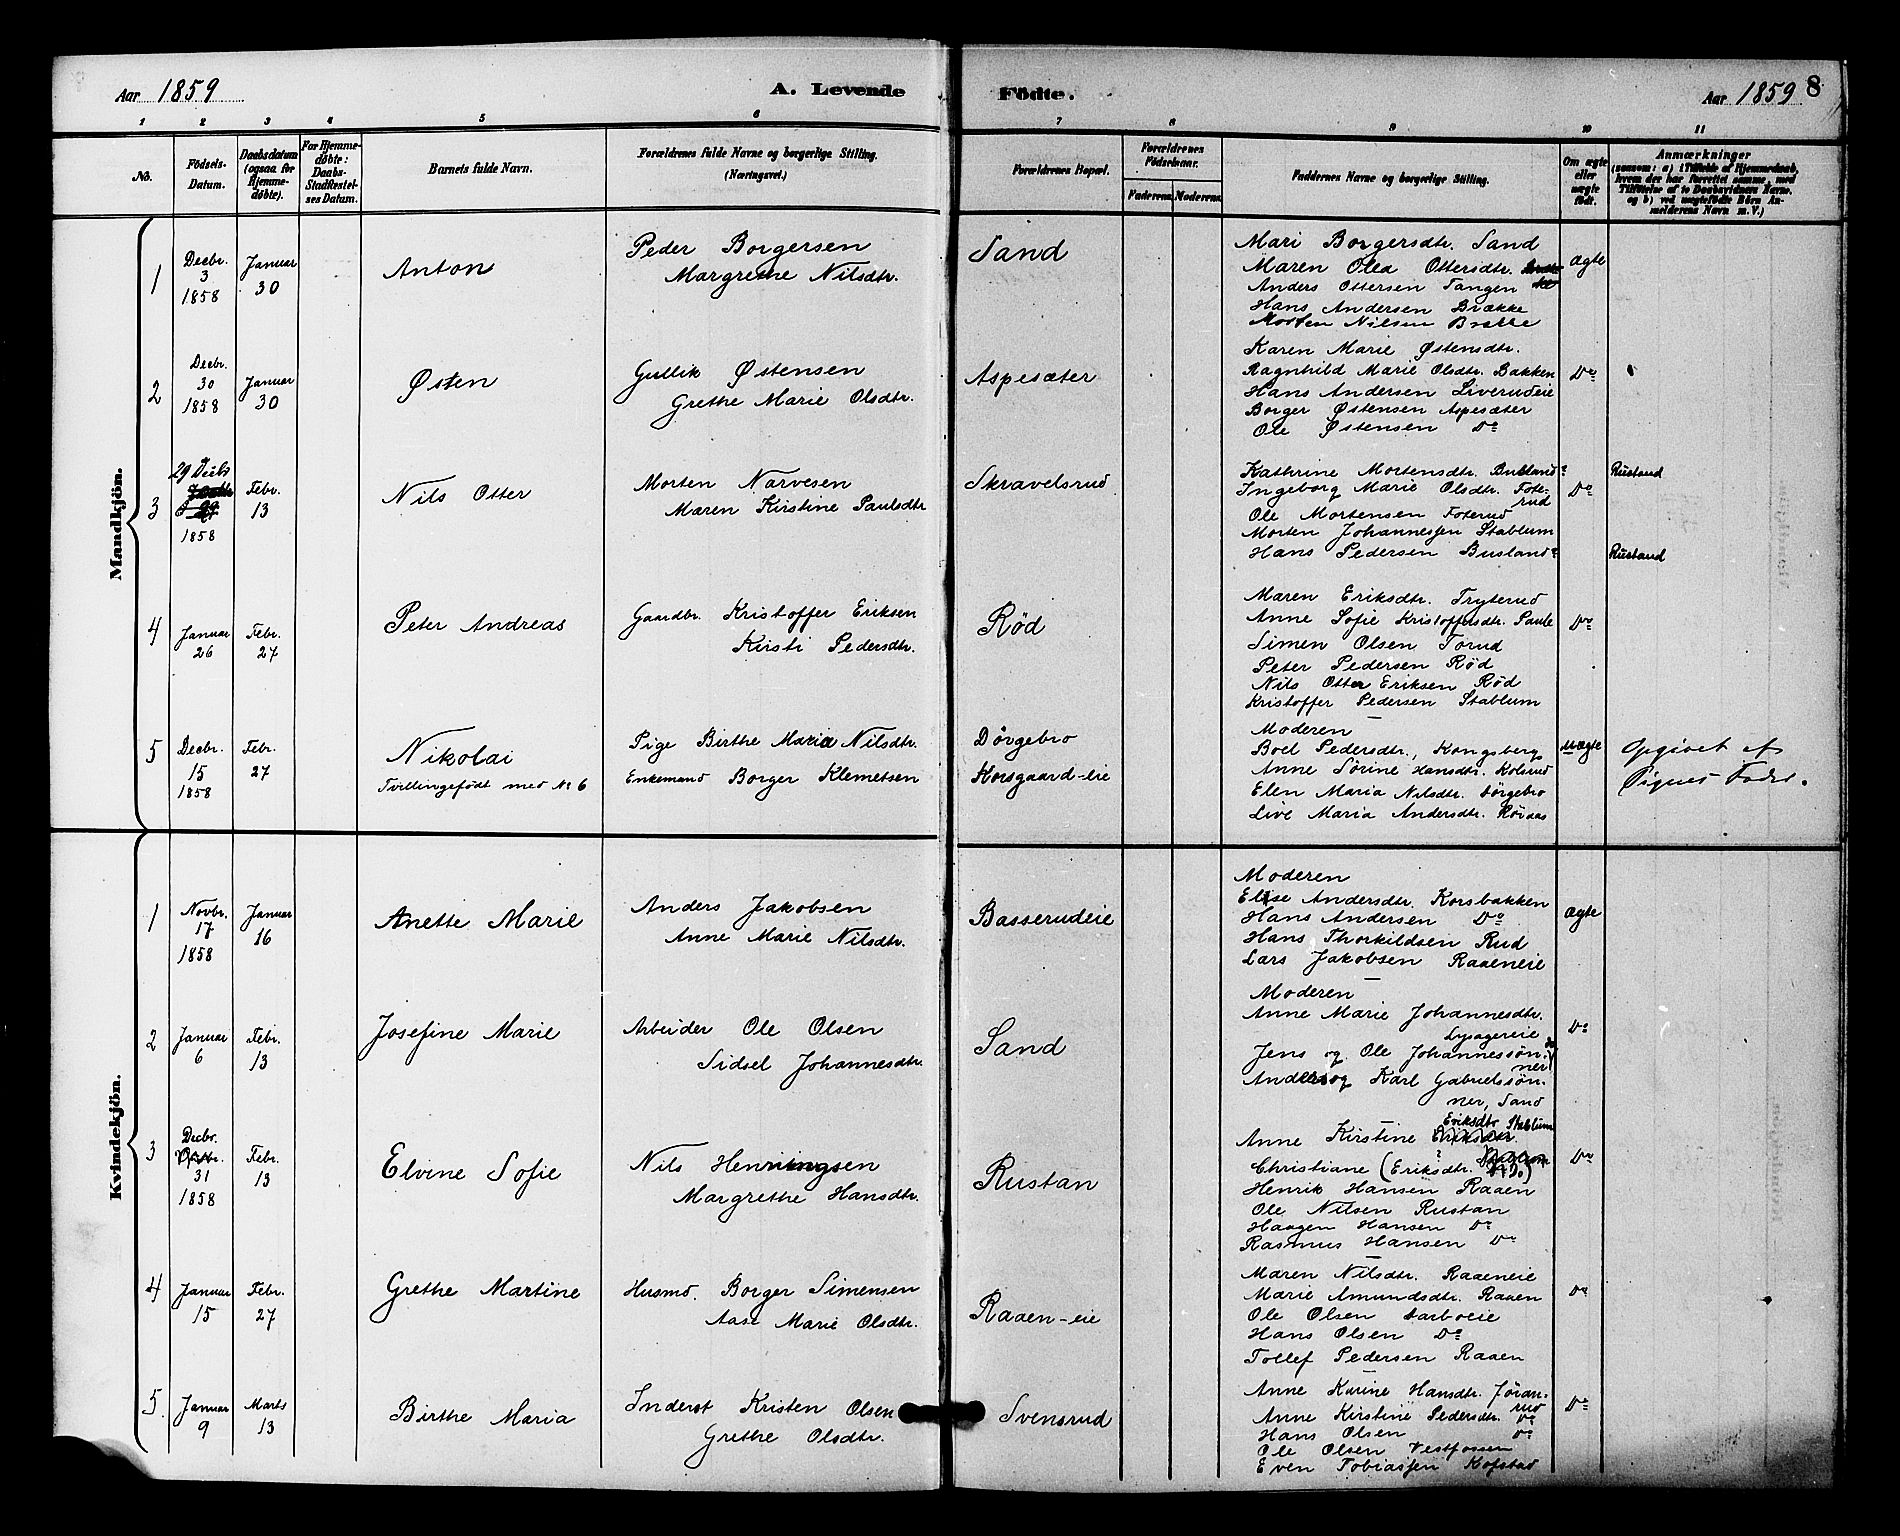 Aar 1859
A. Levende
Födte.
Aar 1859
8
1 2 3 4 5 6 7 8 9 10 11
No.
Födsels-
Datum.
Daabsdatum
(ogsaa for
Hjemme-
døbte).
For Hjemme-
døbte:
Daabs-
Stadfæstel-
ses Datum.
Barnets fulde Navn.
Forældrenes fulde Navne og borgerlige Stilling.
(Næringsvei.)
Forældrenes Bopæl.
Forældrenes
Födselsaar.
Faderens. Moderens.
Faddernes Navne og borgerlige Stilling.
Om ægte
eller
uægte
født.
Anmærkninger
(saasom: a) i Tilfælde af Hjemmedaab,
hvem der har forrettet samme, med
Tilföielse af to Daabsvidners Navne,
og b) ved uægtefødte Börn An-
melderens Navn m. V.)
Mandkjön.
1
Decbr.
3
1858
Januar
30
Anton
Peder Borgersen
Margrethe Nilsdtr.
Sand
Mari Borgersdtr. Sand
Maren Olea Ottersdtr.
Anders Ottersen Tangen
Hans Andersen Brække
Morten Nilsen Brække
Ægte
2
Decbr.
30
1858
Januar
30
Østen
Gullik Østensen
Grethe Marie Olsdtr.
Aspesæter
Karen Marie Østensdtr.
Ragnhild Marie Olsdtr. Bakken
Hans Andersen Liverudeie
Borger Østensen Aspesæter
Ole Østensen Do
Do
3
29 Decbr
1858
Febr.
13
Nils Otter
Morten Narvesen
Maren Kirstine Paulsdtr
Skravelsrud
Kathrine Mortensdtr. Busland?
Ingeborg Marie Olsdtr. Fote-
rud
Ole Mortensen Foterud
Morten Johannessen Stablum
Hans Pedersen Busland?
Do
Rustand
Rustand
4
Januar
26
Febr.
27
Peter Andreas
Gaardbr. Kristoffer Eriksen
Kirsti Pedersdtr.
Rød
Maren Eriksdtr. Tryterud
Anne Sofie Kristoffersdtr. Saule
Simen Olsen Torud
Peter Pedersen Rød
Nils Otter Eriksen Rød
Kristoffer Pedersen Stablum
Do
5
Decbr.
15
1858
Febr.
27
Nikolai
Tvillingefødt med No 6
Pige Birthe Maria Nilsdtr.
Enkemand Borger Klemetsen
Dørgebro
Korsgaard-eie
Moderen
Boel Pedersdtr, Kongsberg
Anne Sørine Hansdtr. Kolsrud
Elen Maria Nilsdtr. Dørgebro
Live Maria Andersdtr. Røraas
Uægte
Opgivet af
Pigens Fader.
Kvindekjön.
1
Novbr.
17
1858
Januar
16
Anette Marie
Anders Jakobsen
Anne Marie Nilsdtr.
Basserudeie
Moderen
Elise Andersdtr. Korsbakken
Hans Andersen Do
Hans Thorkildsen Rud
Lars Jakobsen Raaeneie
Ægte
2
Januar
6
Febr.
13
Josefine Marie
Arbeider Ole Olsen
Sidsel Johannesdtr.
Sand
Moderen
Anne Marie Johannesdtr.
Lysagereie
Jens og Ole Johannessøn-
ner
Anders og Karl Gabrielssøn-
ner, Sand
Do
3
Decbr.
31
1858
Febr.
13
Elvine Sofie
Nils Henningsen
Margrethe Hansdtr.
Rustan
Eriksdtr Stablum
Anne Kirstine
Christiane (Eriksdtr. Do)
Henrik Hansen Raaen
Ole Nilsen Rustan
Haagen Hansen Do
Rasmus Hansen Do
Do
4
Januar
15
Febr.
27
Grethe Martine
Husmd. Borger Simensen
Aase Marie Olsdtr.
Raaen-eie
Maren Nilsdtr. Raaeneie
Marie Amundsdtr. Raaen
Ole Olsen Darboeie
Hans Olsen Do
Tollef Pedersen Raaen
Do
5.
Januar
9
Marts
13
Birthe Maria
Inderst Kristen Olsen
Grethe Olsdtr.
Svensrud
Anne Karine Hansdtr. Jøran-
rud
Anne Kirstine Pedersdtr. Do
Hans Olsen Do
Ole Olsen Vestfossen
Even Tobiassen Kofstad
Do